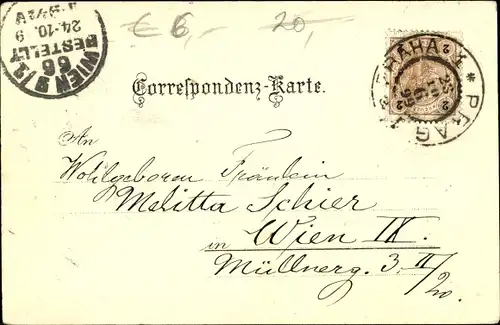 € 6,- 20,
WIEN 9/3
66
BESTELLT
24.10.9
Correspondenz-Karte.
PRAG PRAHA
2 2
2 2
An
Wohlgeboren Fräulein
Melitta Schier
in Wien IX.
Müllnerg. 3. II/20.